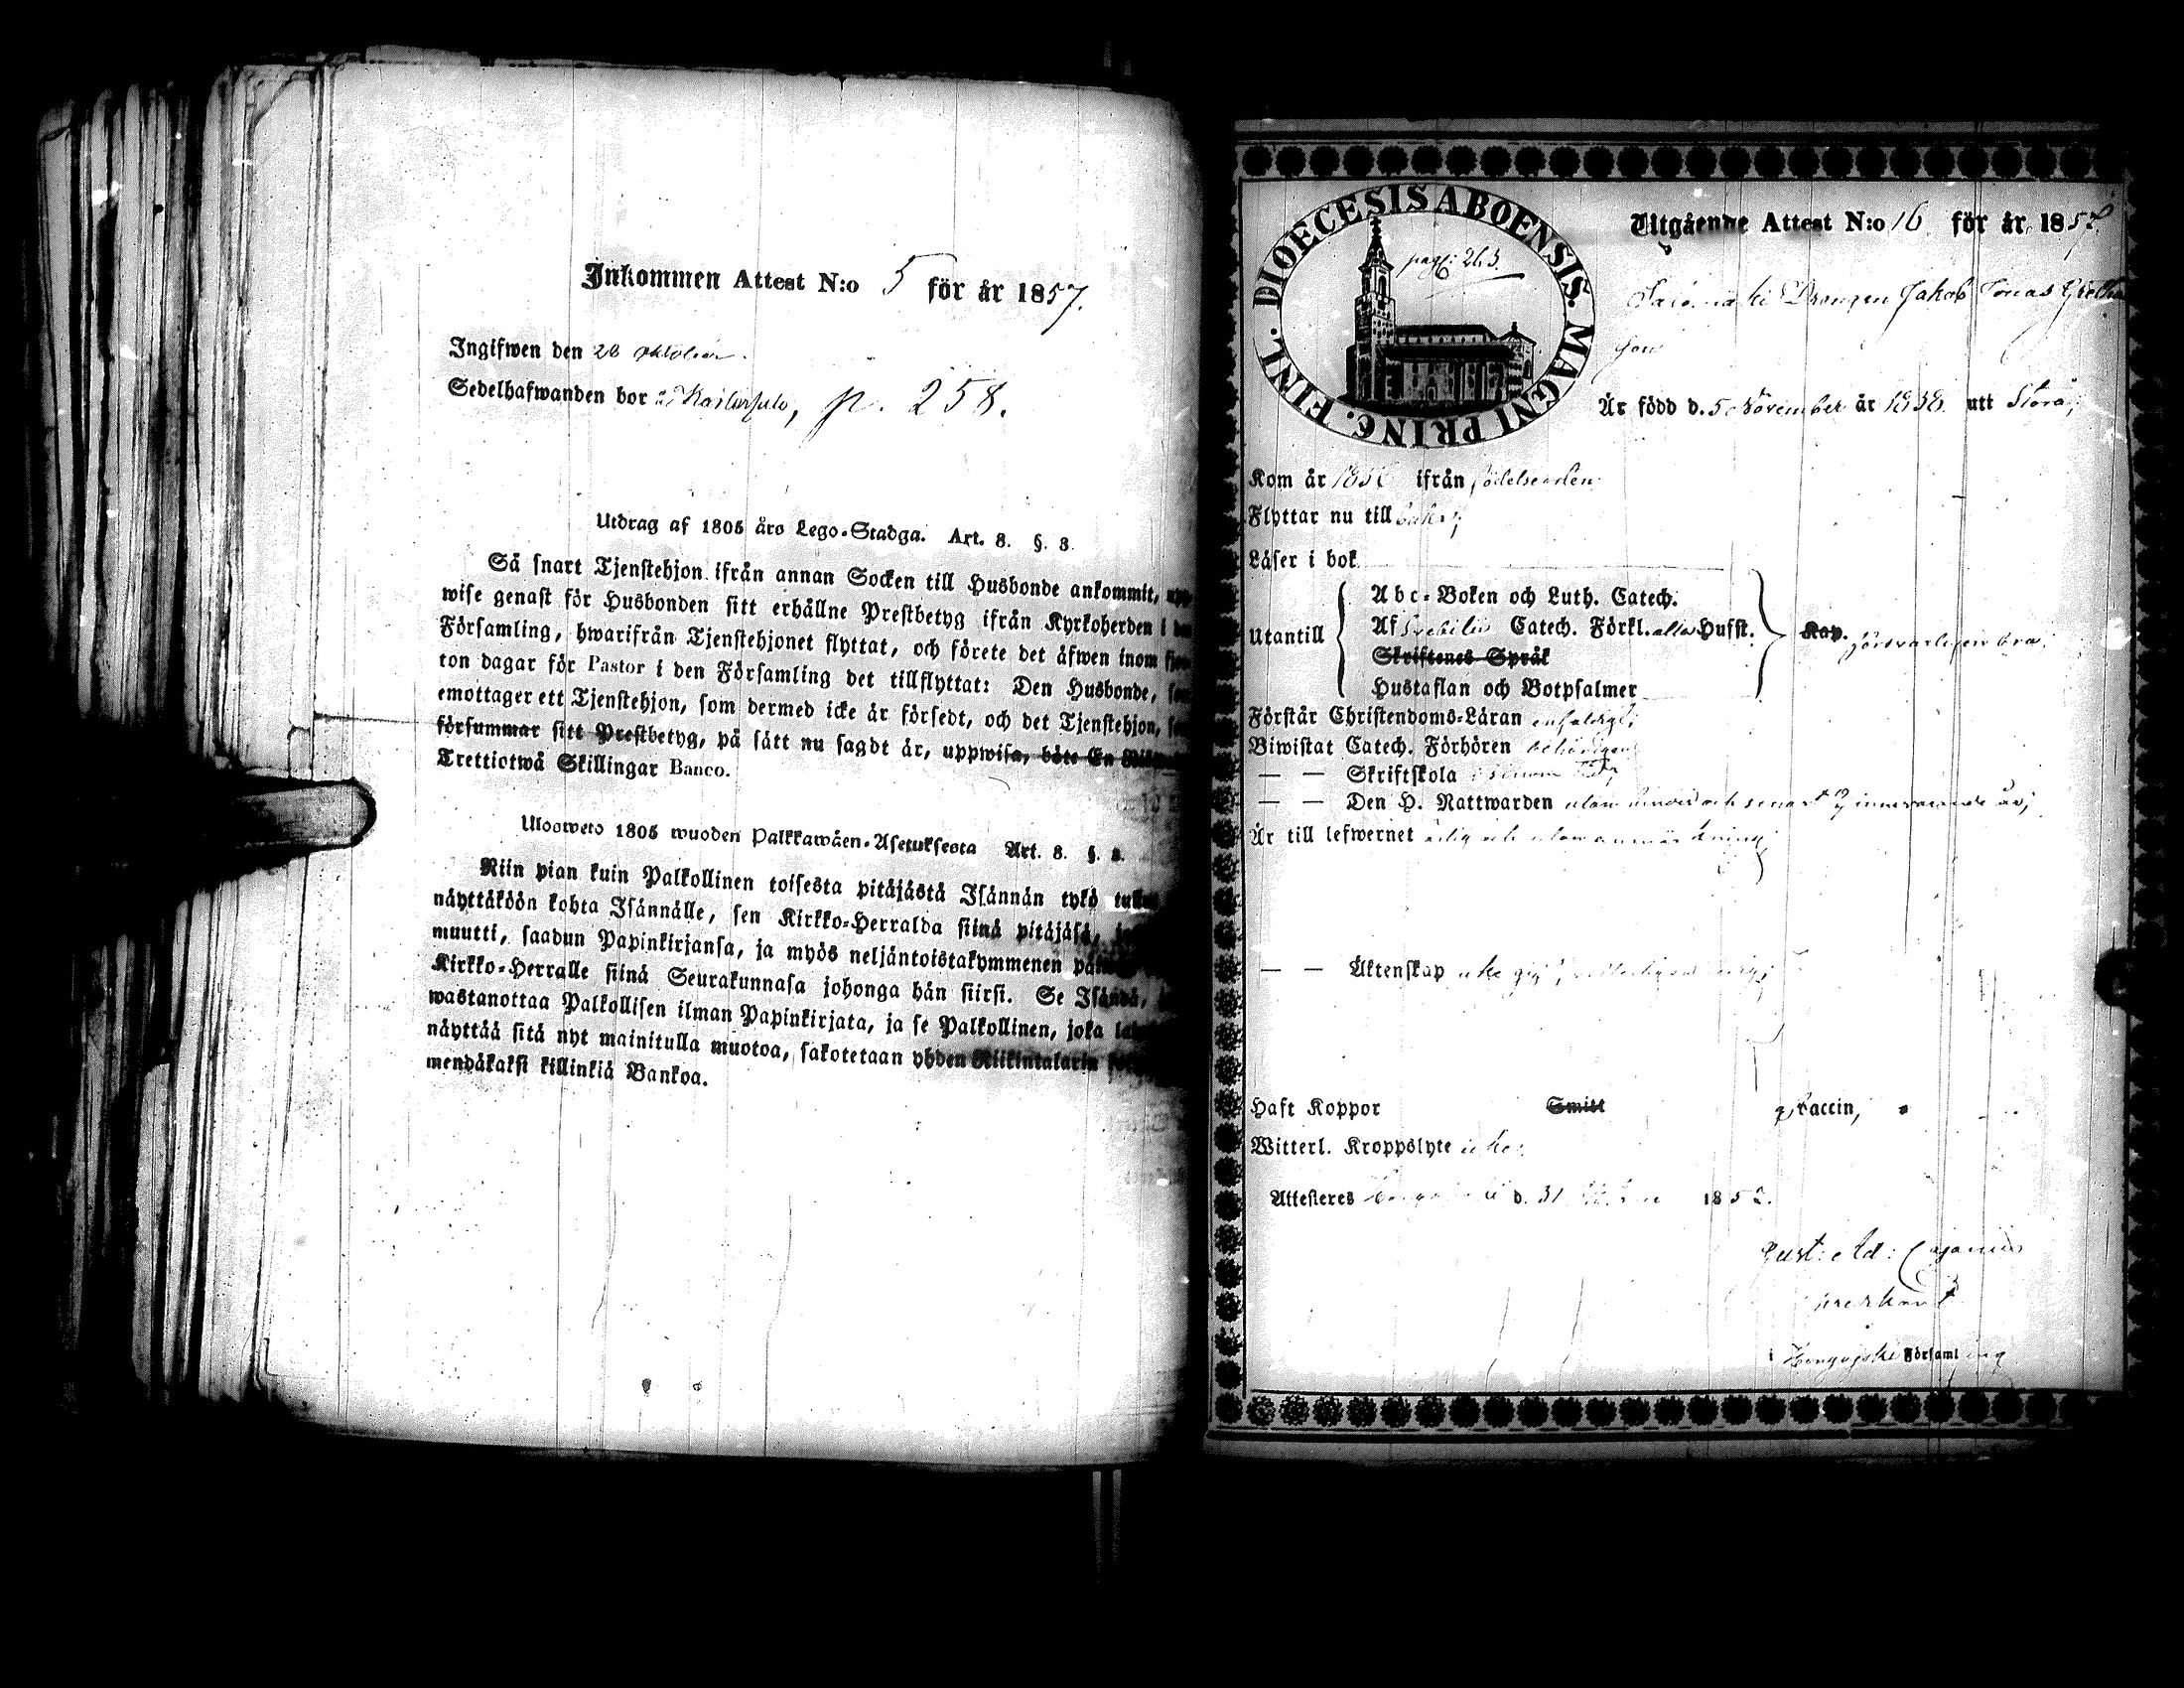 Inkommen Attest N:o 5 för år 1857.
Ingifwen den 28 oktober.
Sedelhafwanden bor å p. 258.
Utdrag af 1805 års Lego-Stadga. Art. 8. §. 3.
Så snart Tjenstehjon ifrån annan Socken till Husbonde ankommit,
wise genast för Husbonden sitt erhållne Prestbetyg ifrån Kyrkoherden i
Församling, hwarifrån Tjenstehjonet flyttat, och förete det äfwen inom
ton dagar för Pastor i den Församling det tillflyttat: Den Husbonde,
emottager ett Tjenstehjon, som dermed icke är försedt, och det Tjenstehjon,
försummar sitt Prestbetyg, på sätt nu sagdt är, uppwisa, böte En
Trettiotwå Skillingar Banco.
Ulosweto 1805 wuoden Palkkawäen-Asetuksesta Art. 8. §.
Niin pian kuin Palkollinen toisesta pitäjästä Isännän tykö
näyttäköön kohta Isännälle, sen Kirkko-Herralda siinä pitäjäsä,
muutti, saadun Papinkirjansa, ja myös neljäntoistakymmenen
Kirkko-Herralle siinä Seurakunnasa johonga hän siirsi. Se Isändä,
wastanottaa Palkollisen ilman Papinkirjata, ja se Palkollinen, joka
näyttää sitä nyt mainitulla muotoa, sakotetaan yhden Riikintalarin
mendäkaksi killinkiä Bankoa.
DIOECESIS ABOENSIS. MAGNI PRINC. FINL.
pag: 263.
Utgående Attest N:o 16 för år 185
Drengen Jakob Jonas
son
Är född d. 5 November år 1838 utt Storå;
Kom år ifrån födelseorten
Flyttar nu till
Läser i bok
Utantill
Abc-Boken och Luth. Catech.
Af Svebilii Catech. Förkl. alla Hufst.
Skriftenes Språk
Hustaflan och Botpsalmer
Kap. försvarligen bra;
Förstår Christendoms-Läran enfaldigt;
Biwistat Catech. Förhören behörigen
— — Skriftskola
— — Den H. Nattwarden utan hinder och senast innevarande år;
Är till lefwernet ärlig och utan anmärkning;
— — Äktenskap icke
Haft Koppor Smitt Vaccin,
Witterl. Kroppslyte icke.
Attesteres d. 31 185
Gust: Ad: Cajanus
i Församling